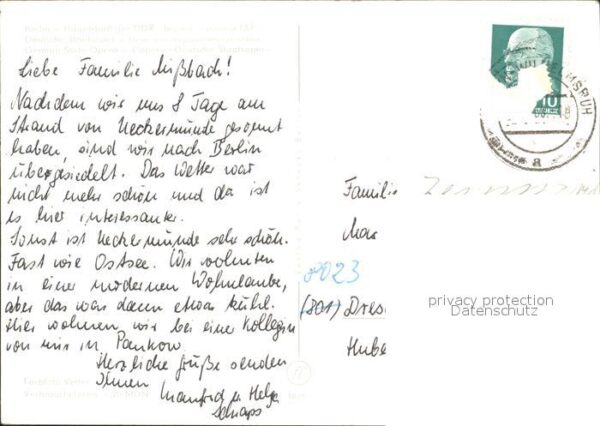 Berlin - Hauptstadt der DDR
Deutsche Staatsoper
German State Opera
Liebe Familie Mißbach!
Nachdem wir uns 8 Tage am
Strand von Ueckermünde gesonnt
haben, sind wir nach Berlin
übergesiedelt. Das Wetter war
nicht mehr schön und da ist
es hier interessanter.
Sonst ist Ueckermünde sehr schön.
Fast wie Ostsee. Wir wohnten
in einer modernen Wohnlaube,
aber das war dann etwas kühl.
Hier wohnen wir bei einer Kollegin
von mir in Pankow.
Herzliche Grüße senden
Ihnen
Manfred u. Helga
10
a
Familie
Max
8023
(801) Dres
Hube
privacy protection
Datenschutz